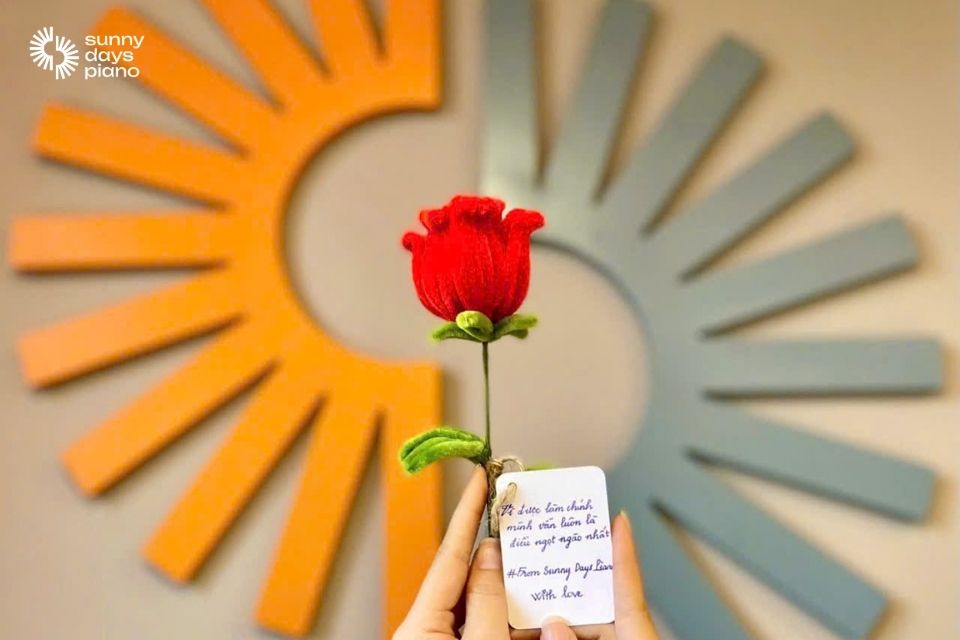 sunny
days
piano
Vì được làm chính
mình vẫn luôn là
điều ngọt ngào nhất
#From Sunny Days Piano
With love